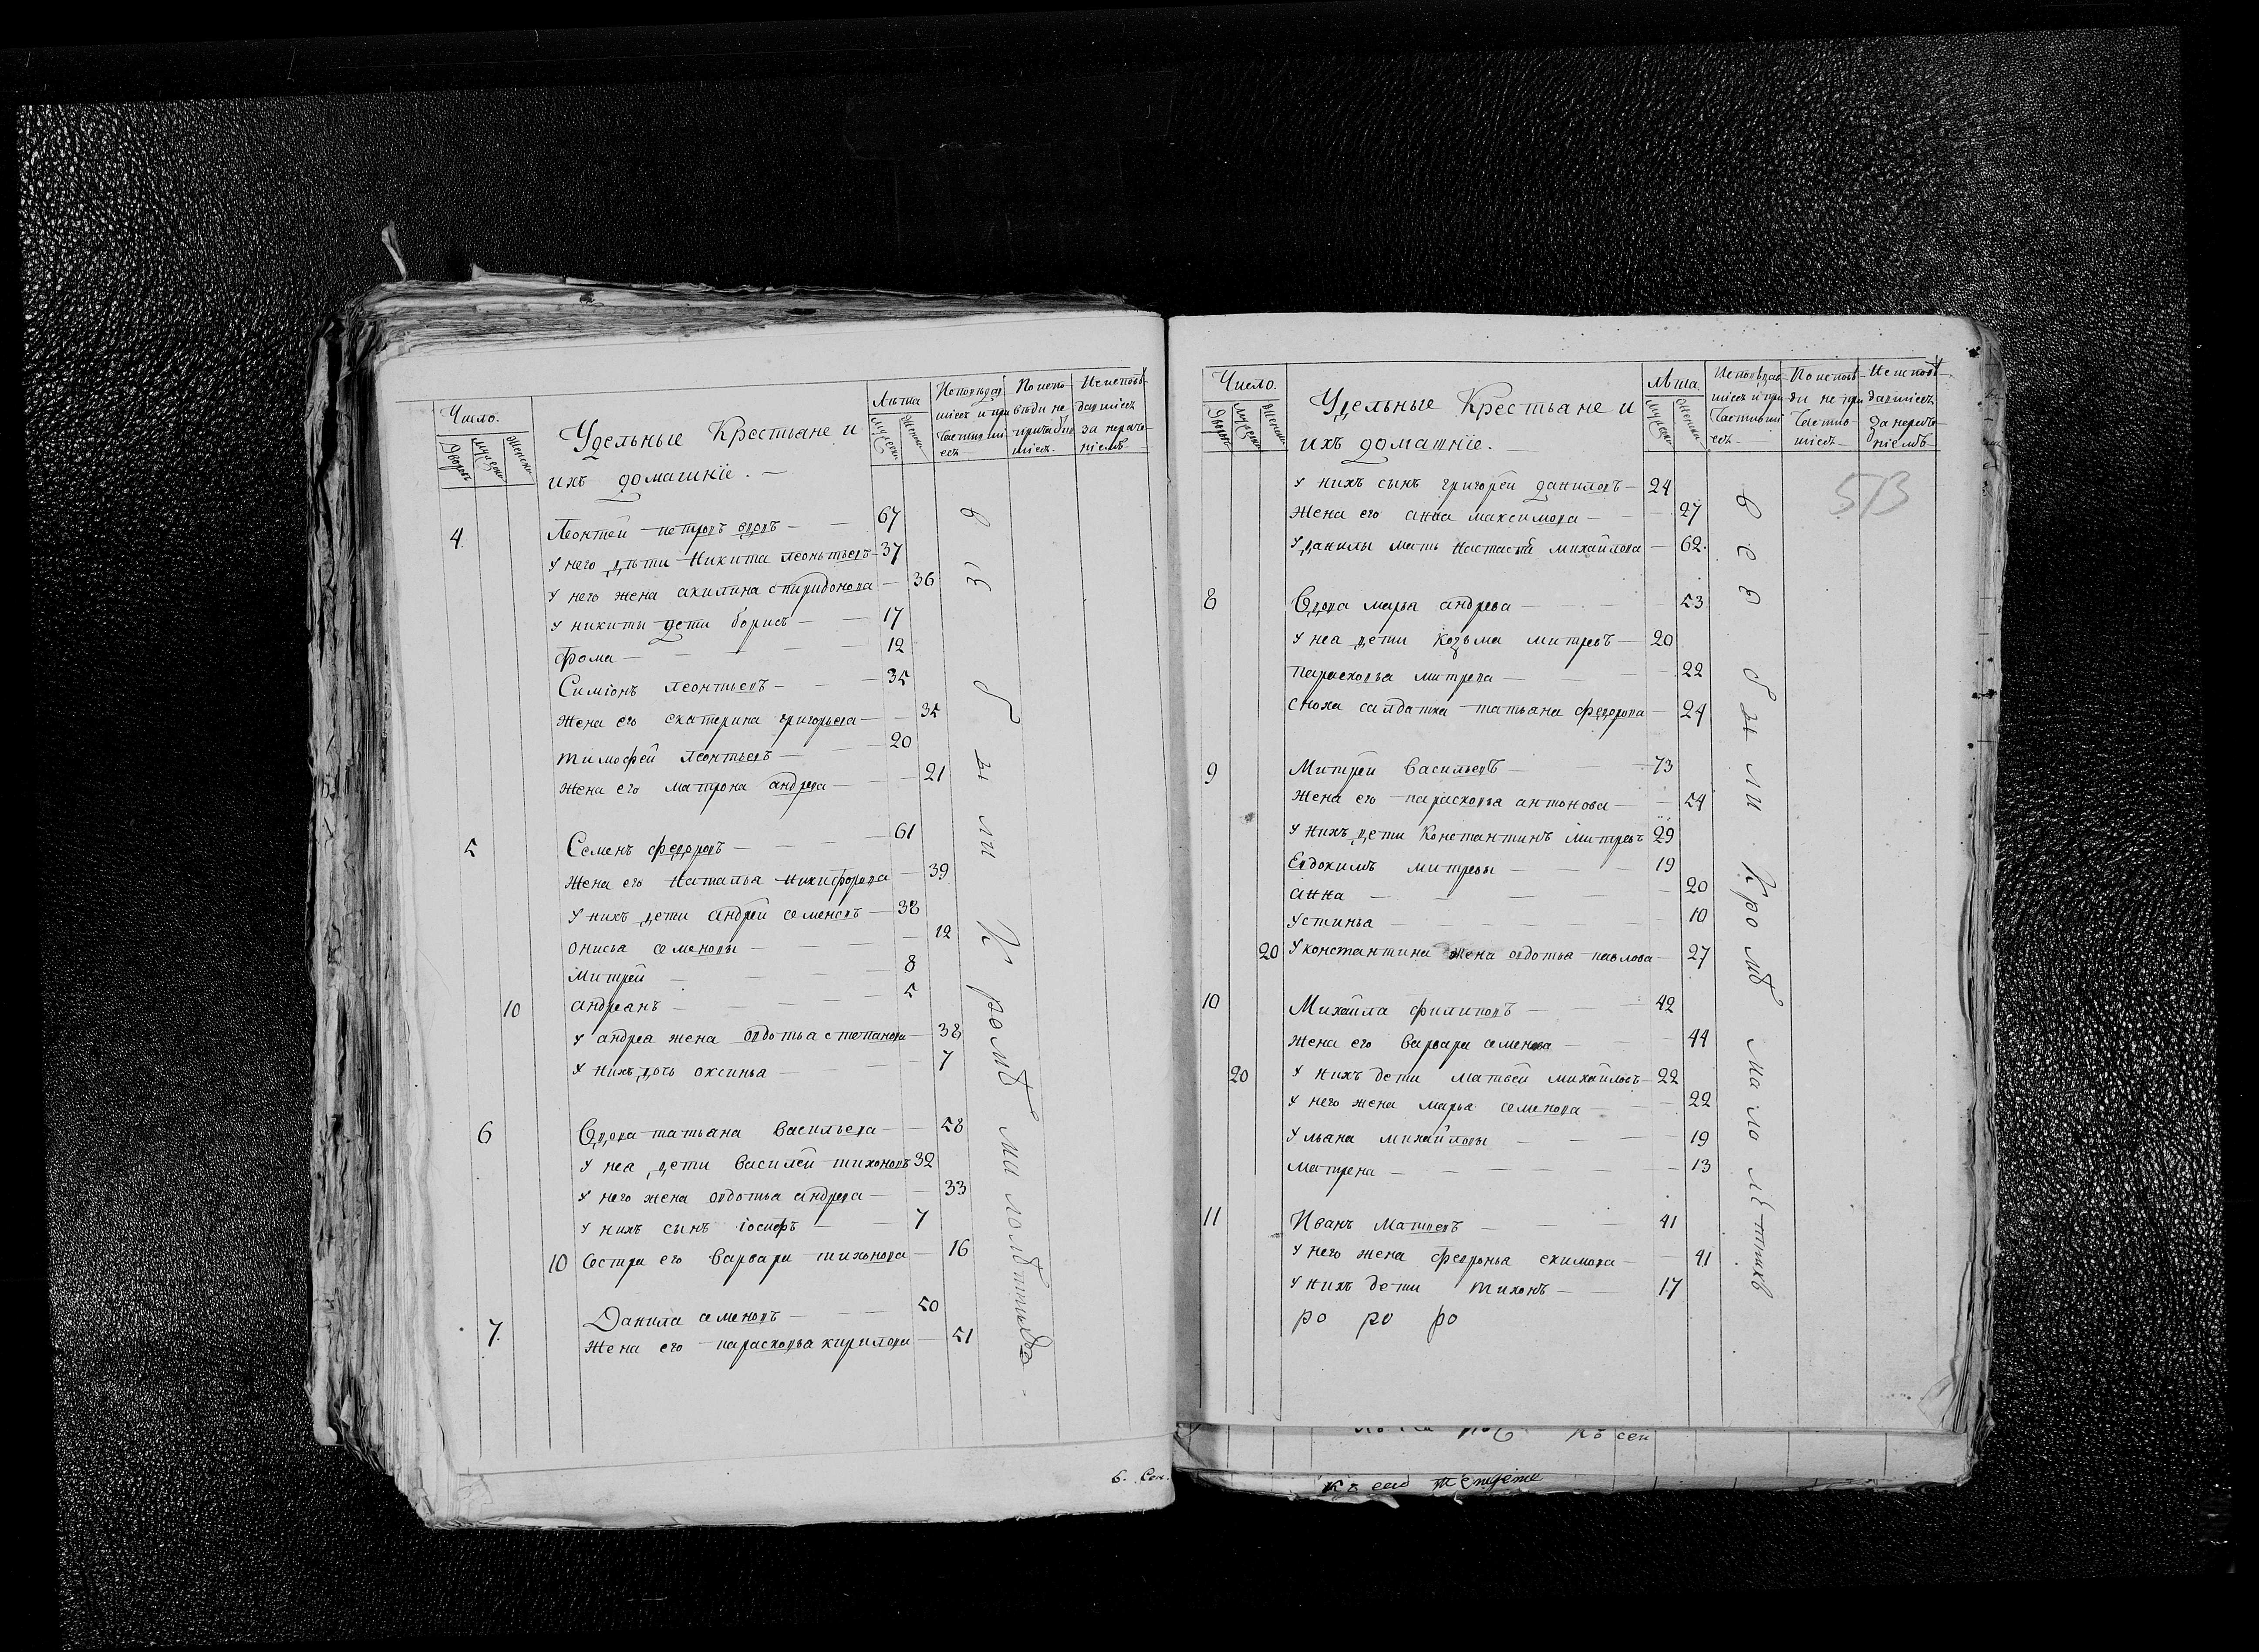 Число.
Дворовъ
мужеска
женска
Удельные Крестьяне и
ихъ домашнiе. —
Лѣта
мужеск.
женск.
Исповѣдав
шiесѧ и при
частив ши
есѧ —
По испо
вѣди не
причасти
шiесѧ.
Неисповѣ-
давшiесѧ
за нераче-
нiемъ
4 Леонтей петровъ вдовъ — — 67
У него дѣти Никита леонтьевъ — 37
У него жена акилина спиридонова — 36
У никиты дети борисъ — — 17
Фома — — — — — 12
Симiонъ леонтьевъ — — — 35
Жена его екатерина григорьева — — 35
тимофей леонтьевъ — — 20
Жена его матрона андрева — — 21
5 Семенъ федоровъ — — — — 61
Жена его Наталья никифорова — 39
У нихъ дети андрей семеновъ — 38
онисья семеновы — — — — 12
Митрей — — — — 8
10 андреанъ — — — — — 5
У андрея жена овдотья степанова — 38
У нихъ дочь оксинья — — — — 7
6 Вдова татьяна Васильева — — 58
У неа дети Василей тихоновъ 32
У него жена овдотья андрева — — 33
У нихъ сынъ iосифъ — — 7
10 Сестра его варвара тихонова — 16
7. Данила семеновъ — — — 50
Жена его парасковья кирилова — 51
всѣ были Кромѣ малолѣтныхъ
6. Сен.
Число.
Дворовъ
мужеска
женска
Удельные Крестьяне и
ихъ домашнiе. —
Лѣта
мужеск.
женск.
Исповѣдав-
шiесѧ и при
частивши
есѧ —
По исповѣ-
ди не при
частив-
шiесѧ —
Неисповѣ-
давшiесѧ
за нераче-
нiемъ —
573
У нихъ сынъ григорей даниловъ — 24
Жена его анна максимова — — 27
У данилы мать Настасья михайлова — 62.
8 Вдова марья андрева — — — — 53
У неа дети козьма митревъ — 20
парасковья митрева — — — 22
сноха салдатка татьяна федорова — 24
9 Митрей васильевъ — — — 73
Жена его парасковья антонова — — 54
У нихъ дети Константинъ митревъ 29
Евдокимъ митревы — — — 19
анна — — — — — — 20
устинья — — — — — — 10
20 У константина жена овдотья павлова — 27
10 Михайла филиповъ — — — 42
Жена его варвара семенова — — — 44
20 У нихъ дети матвей михайловъ — 22
У него жена марья семенова — — — 22
Ульяна михайловы — — — — 19
матрена — — — — — — 13
11 Иванъ матвевъ — — — 41
У него жена февронья екимова — — 41
У нихъ дети тихонъ — — 17
ро ро ро
всѣ были Кромѣ малолѣтныхъ